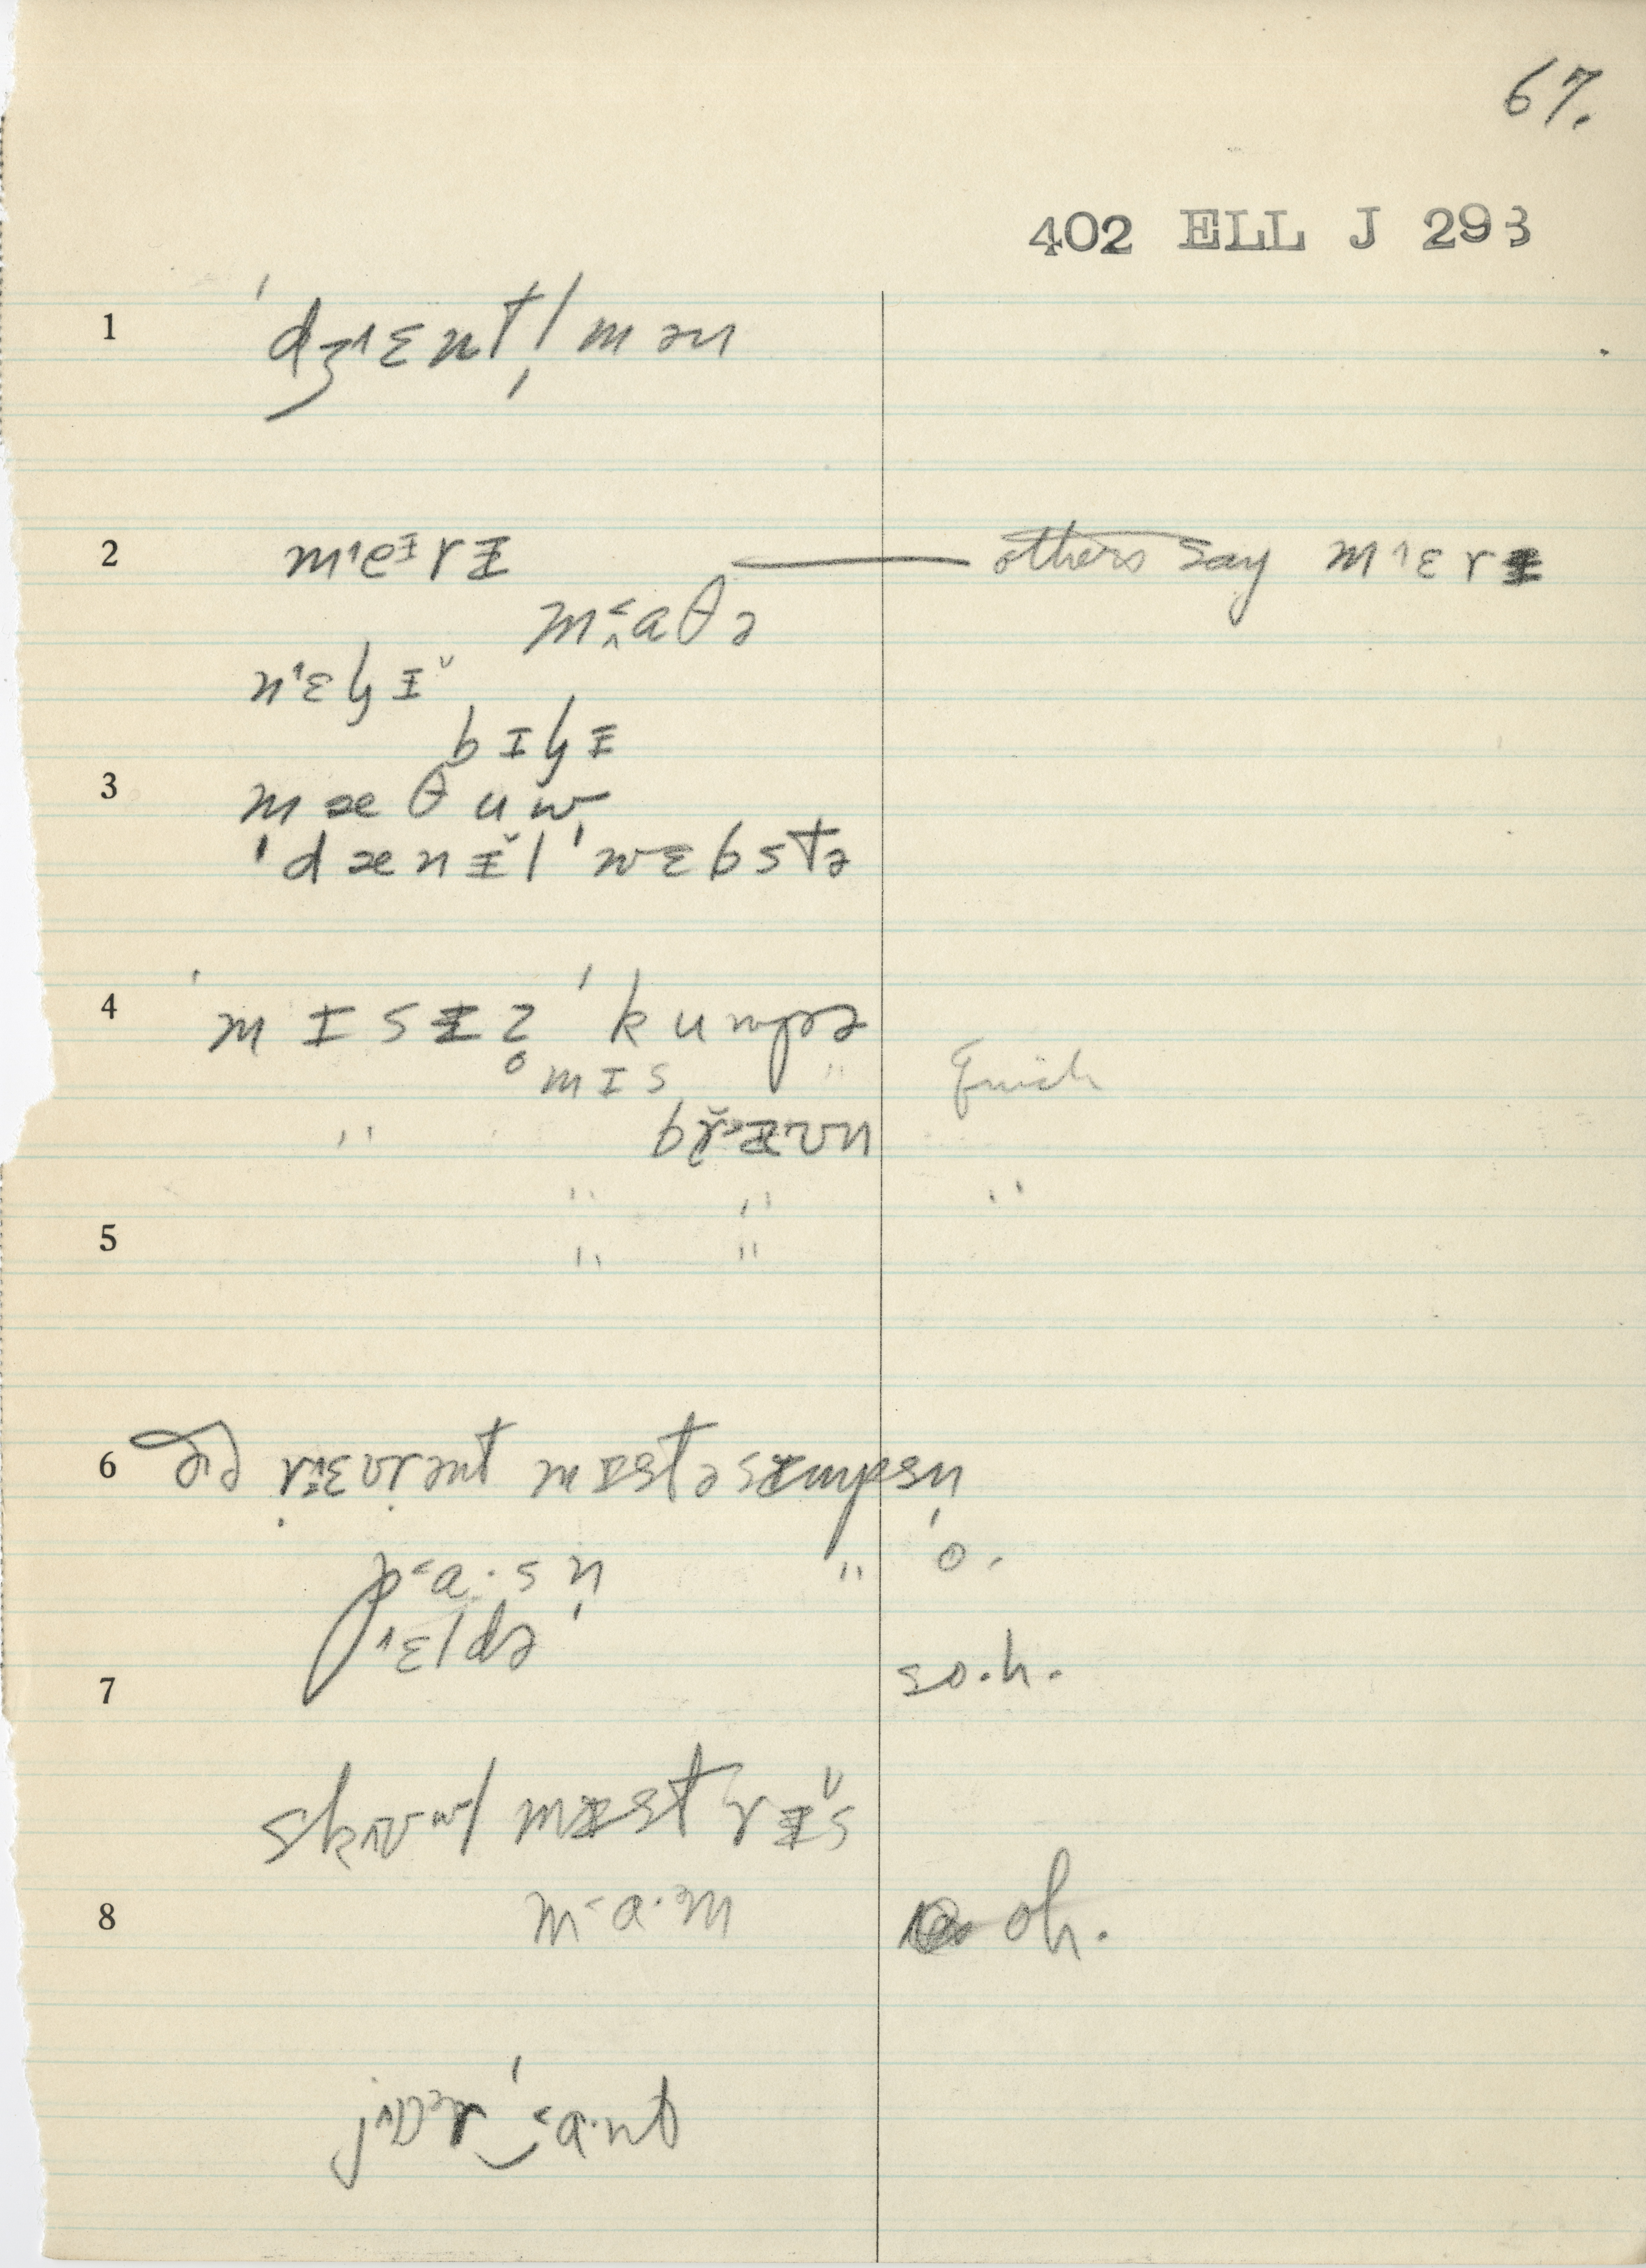 67.
402 ELL J 293
1 ˈdʒ˄ɛnt|̩mən
2 m˄eᵻrᵻ — others say m˄ɛrᵻ
m˂̭aθə
n˄ɛɬɪ̌
bɪɬɪ
3 mæθuw
ˈdænᵻ̌l ˈwɛbstə
4 ˈmɪsᵻz̥ ˈkumpə
mɪs " Quick
" br̆æʊn
" " "
5 " "
6 ðə r˄ɛvrənt mɪstə sɪmpsn̩
p˂a·sn̩ " o.
˄ɛldə
7 so.h.
sk˄ʊwl mɪstrᵻ̌s
8 m˂a·m oh.
j˄ɒər‿ˈ˂a·nt